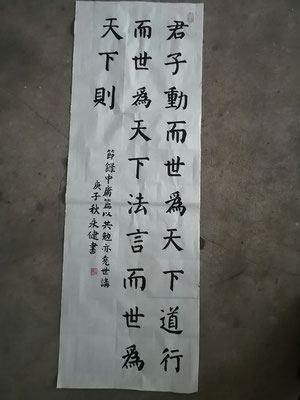 君子動而世為天下道行
而世為天下法言而世為
天下則
節録中庸篇以共勉亦堯世講
庚子秋永健書